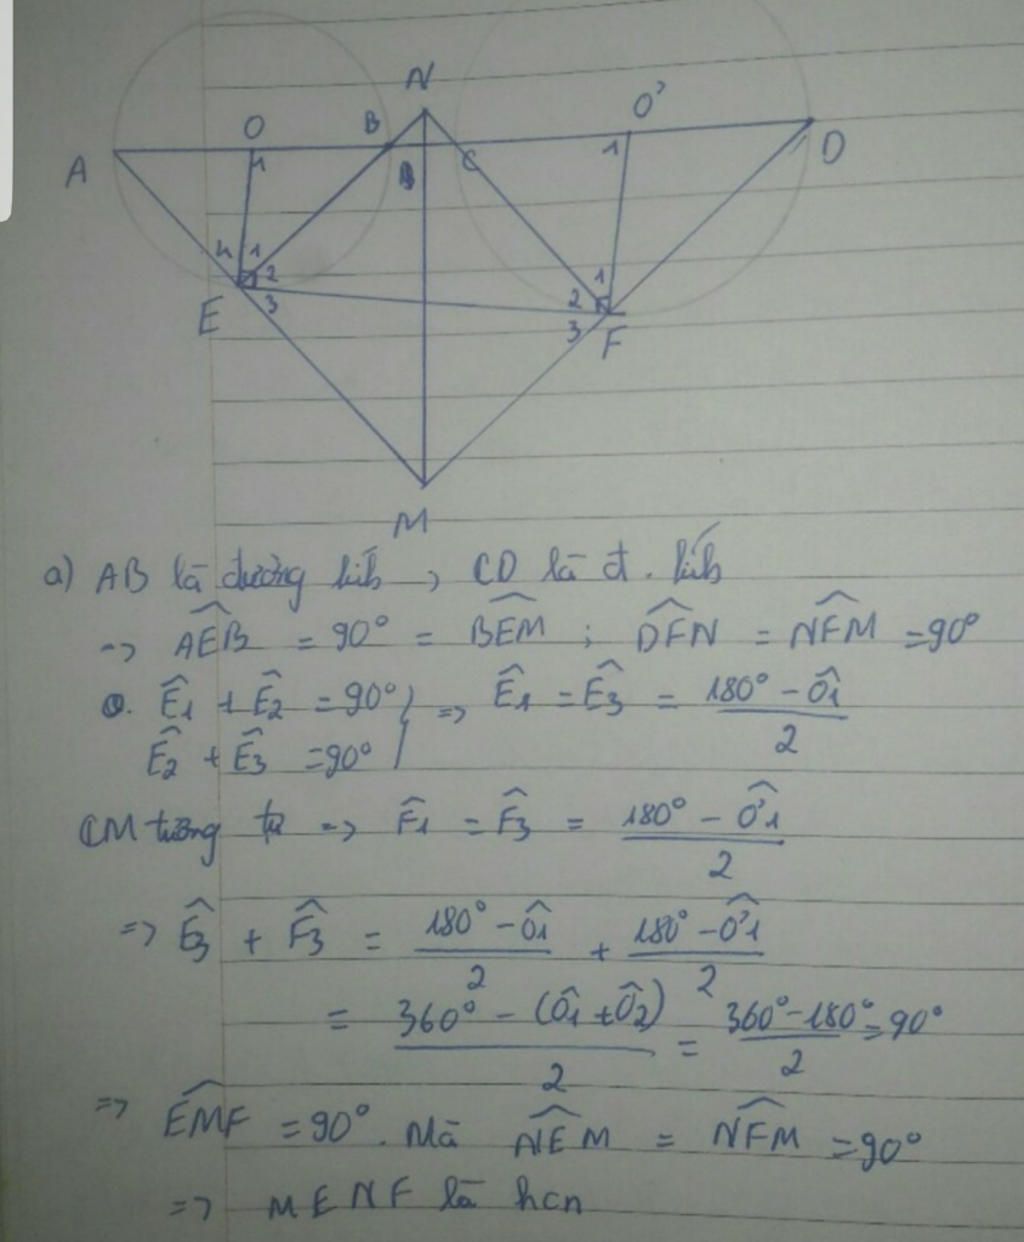 N
O B O'
A 1 B C 1 D
4 1 2 3 1 2 3
E F
M
a) AB là đường kính, CD là đ. kính
=> \widehat{AEB} = 90° = \widehat{BEM} ; \widehat{DFN} = \widehat{NFM} = 90°
\widehat{E}1 + \widehat{E}2 = 90° } => \widehat{E}1 = \widehat{E}3 = (180° - \widehat{O}1)/2
\widehat{E}2 + \widehat{E}3 = 90°
CM tương tự => \widehat{F}1 = \widehat{F}3 = (180° - \widehat{O'}1)/2
=> \widehat{E}3 + \widehat{F}3 = (180° - \widehat{O}1)/2 + (180° - \widehat{O'}1)/2
= (360° - (\widehat{O}1 + \widehat{O}2))/2 = (360° - 180°)/2 = 90°
=> \widehat{EMF} = 90°. Mà \widehat{NEM} = \widehat{NFM} = 90°
=> MENF là hcn